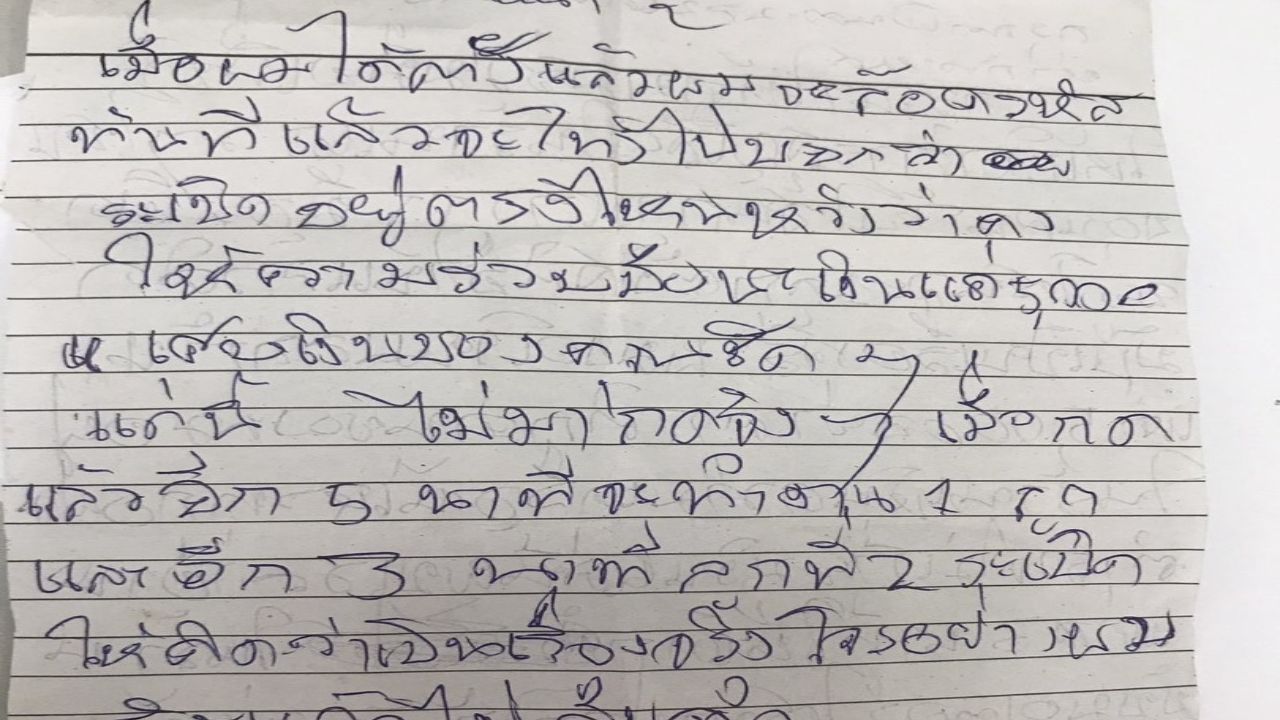 เมื่อผมได้ตังแล้วผมจะล็อครหัส
ทันทีแล้วจะโทรไปบอกว่า
ระเบิดอยู่ตรงไหนหวังว่าคง
ให้ความร่วมมือนะเงินแค่
เศษเงินของคุณชัด ๆ
แค่นี้ ไม่มากดจริง ๆ เมื่อกด
แล้วอีก 5 นาทีจะทำงาน 1 ลูก
และอีก 3 นาทีลูกที่ 2 ระเบิด
ให้คิดว่าเป็นเรื่องจริง โจรอย่างผม